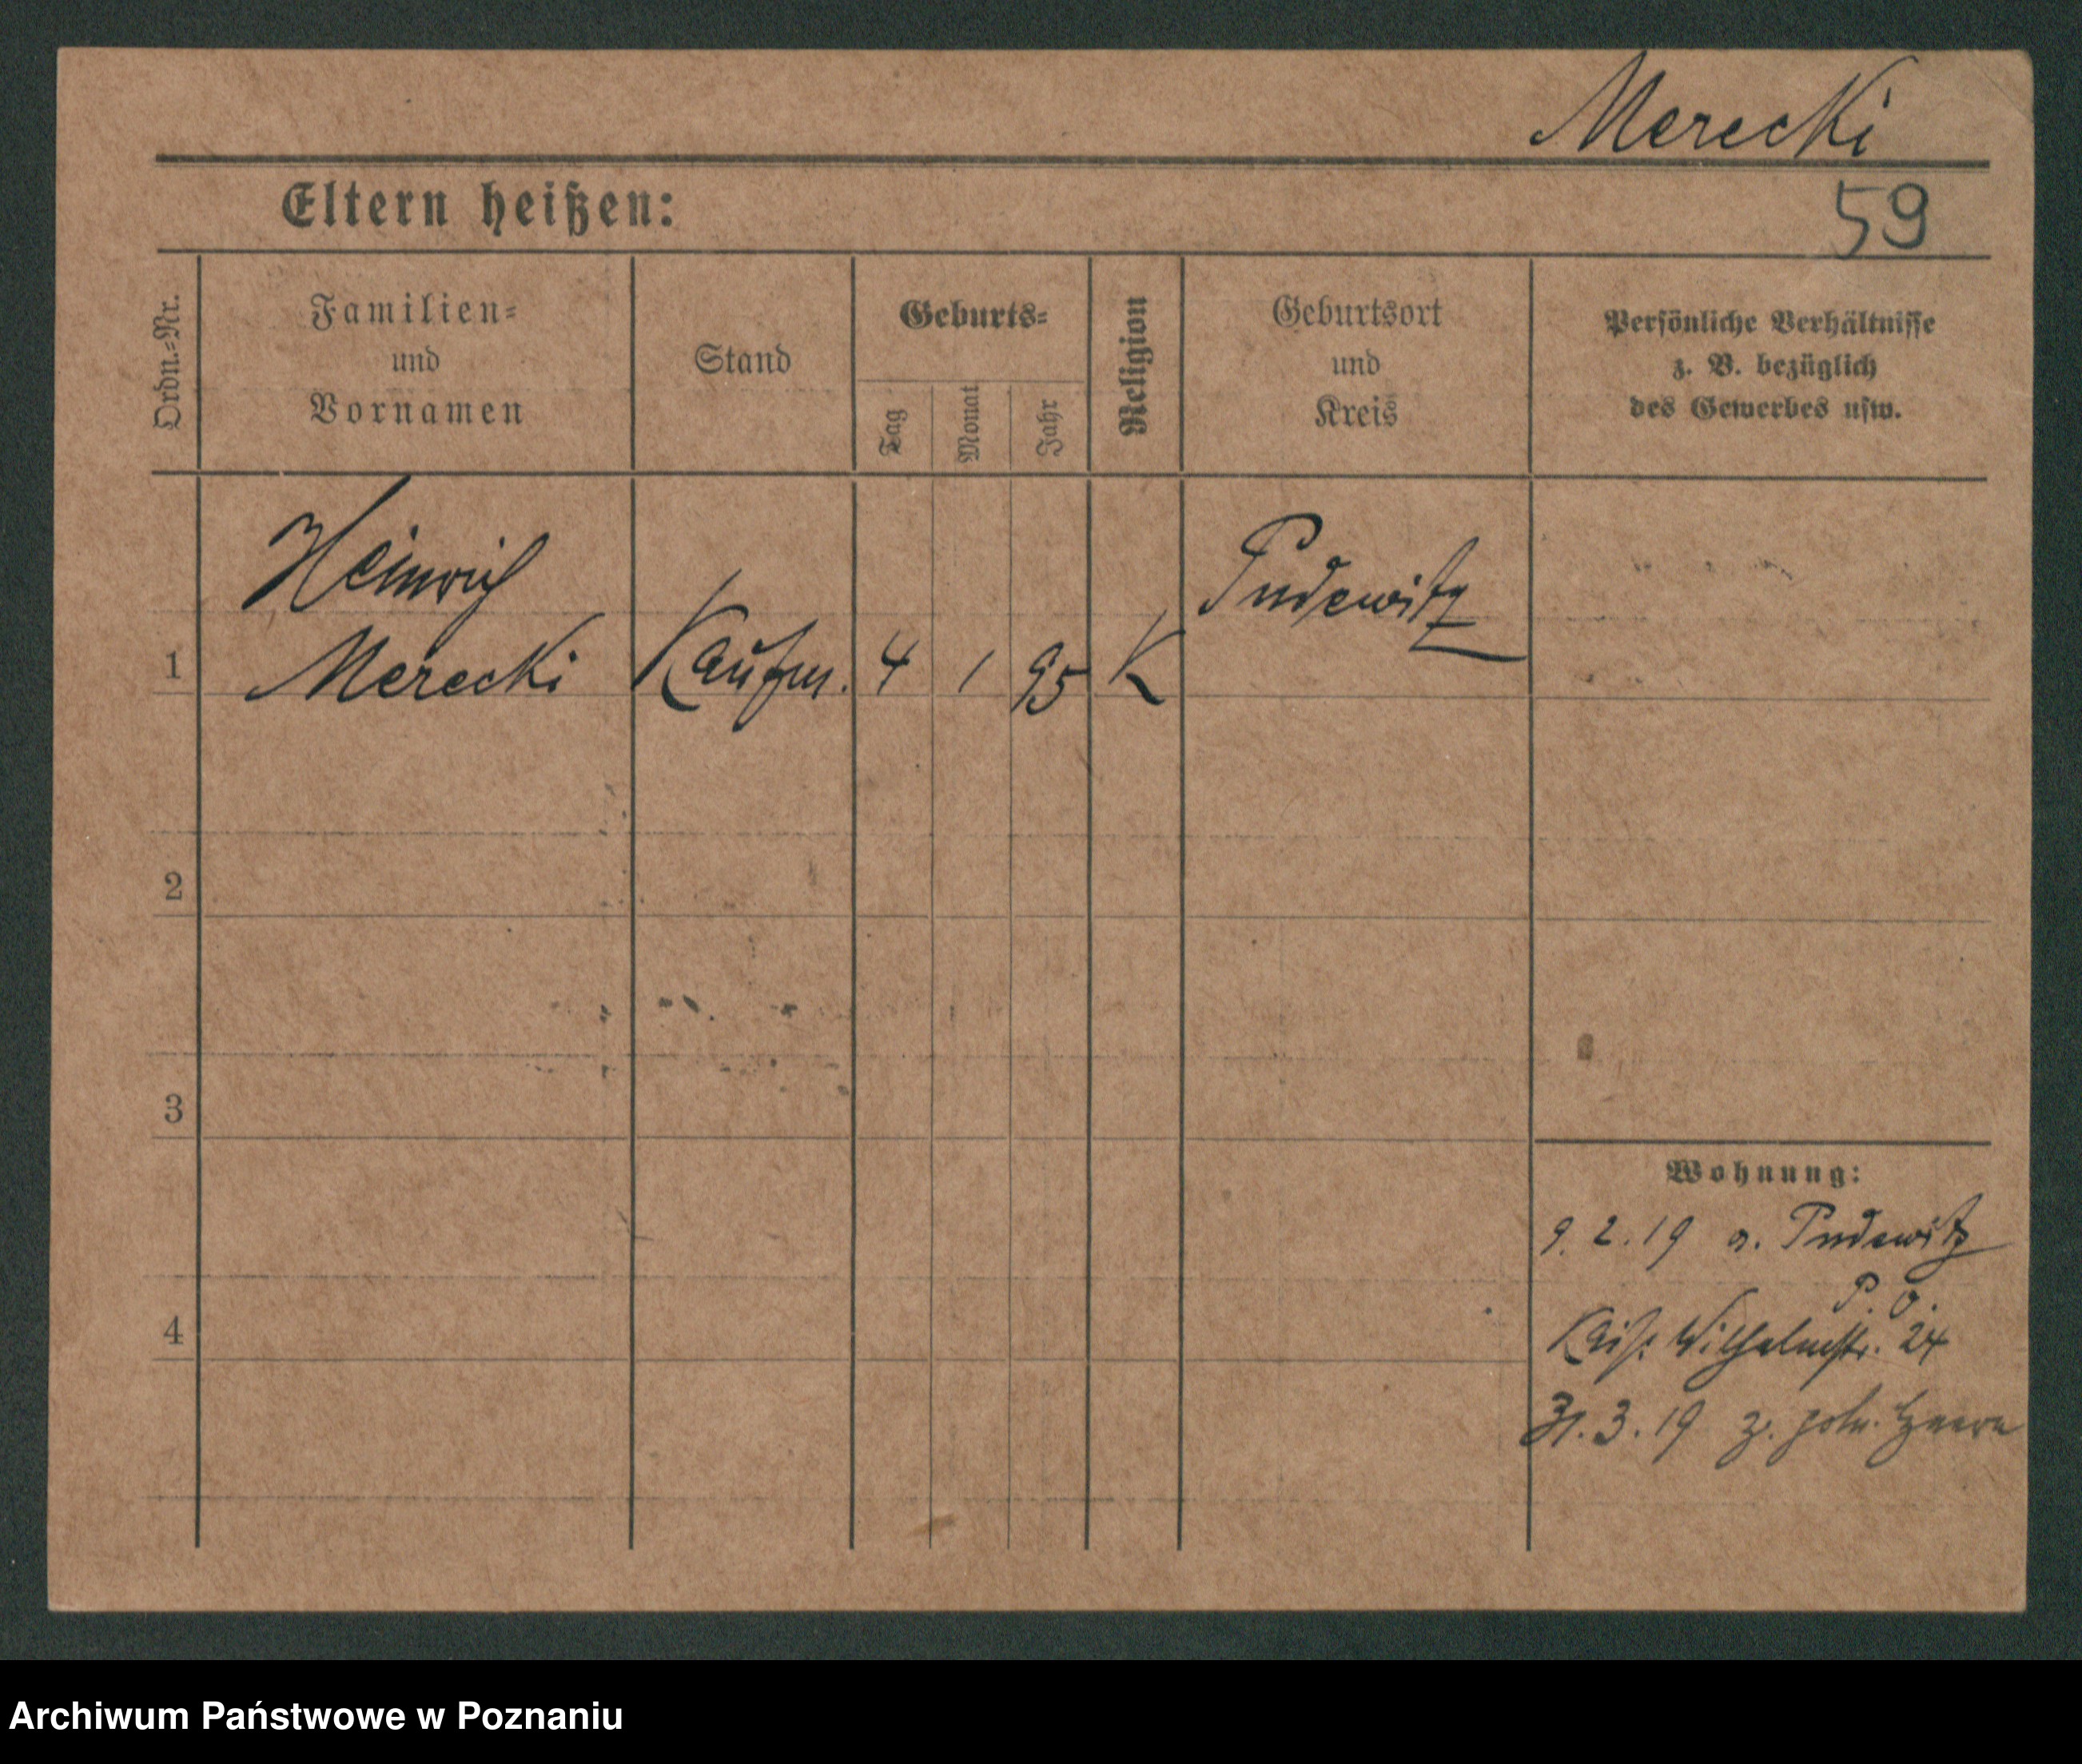 Merecki
Eltern heißen:
59
Ordn.-Nr.
Familien-
und
Vornamen
Stand
Geburts-
Tag
Monat
Jahr
Religion
Geburtsort
und
Kreis
Persönliche Verhältnisse
z. B. bezüglich
des Gewerbes usw.
Heinrich
Pudewitz
1 Merecki Kaufm. 4 1 95 K
2
3
Wohnung:
9. 2. 19 a. Pudewitz
P. O.
4
Kais. Wilhelmstr. 24
31. 3. 19 z. poln.
Archiwum Państwowe w Poznaniu